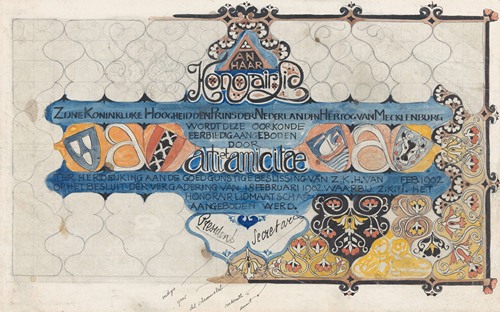 AN
HAAR
Honorair Lid
ZIJNE KONINKLIJKE HOOGHEID DEN PRINS DER NEDERLANDEN HERTOG VAN MECKLENBURG
WORDT DEZE OORKONDE
EERBIEDIG AANGEBODEN
DOOR
a arti et amicitiae a
TER HERDENKING AAN DE GOEDGUNSTIGE BESLISSING VAN Z.K.H. VAN FEB 1902
OP HET BESLUIT DER VERGADERING VAN 18 FEBRUARI 1902 WAARBIJ Z.K.H. HET
HONORAIR LIDMAATSCHAP
AANGEBODEN WERD.
President Secretaris